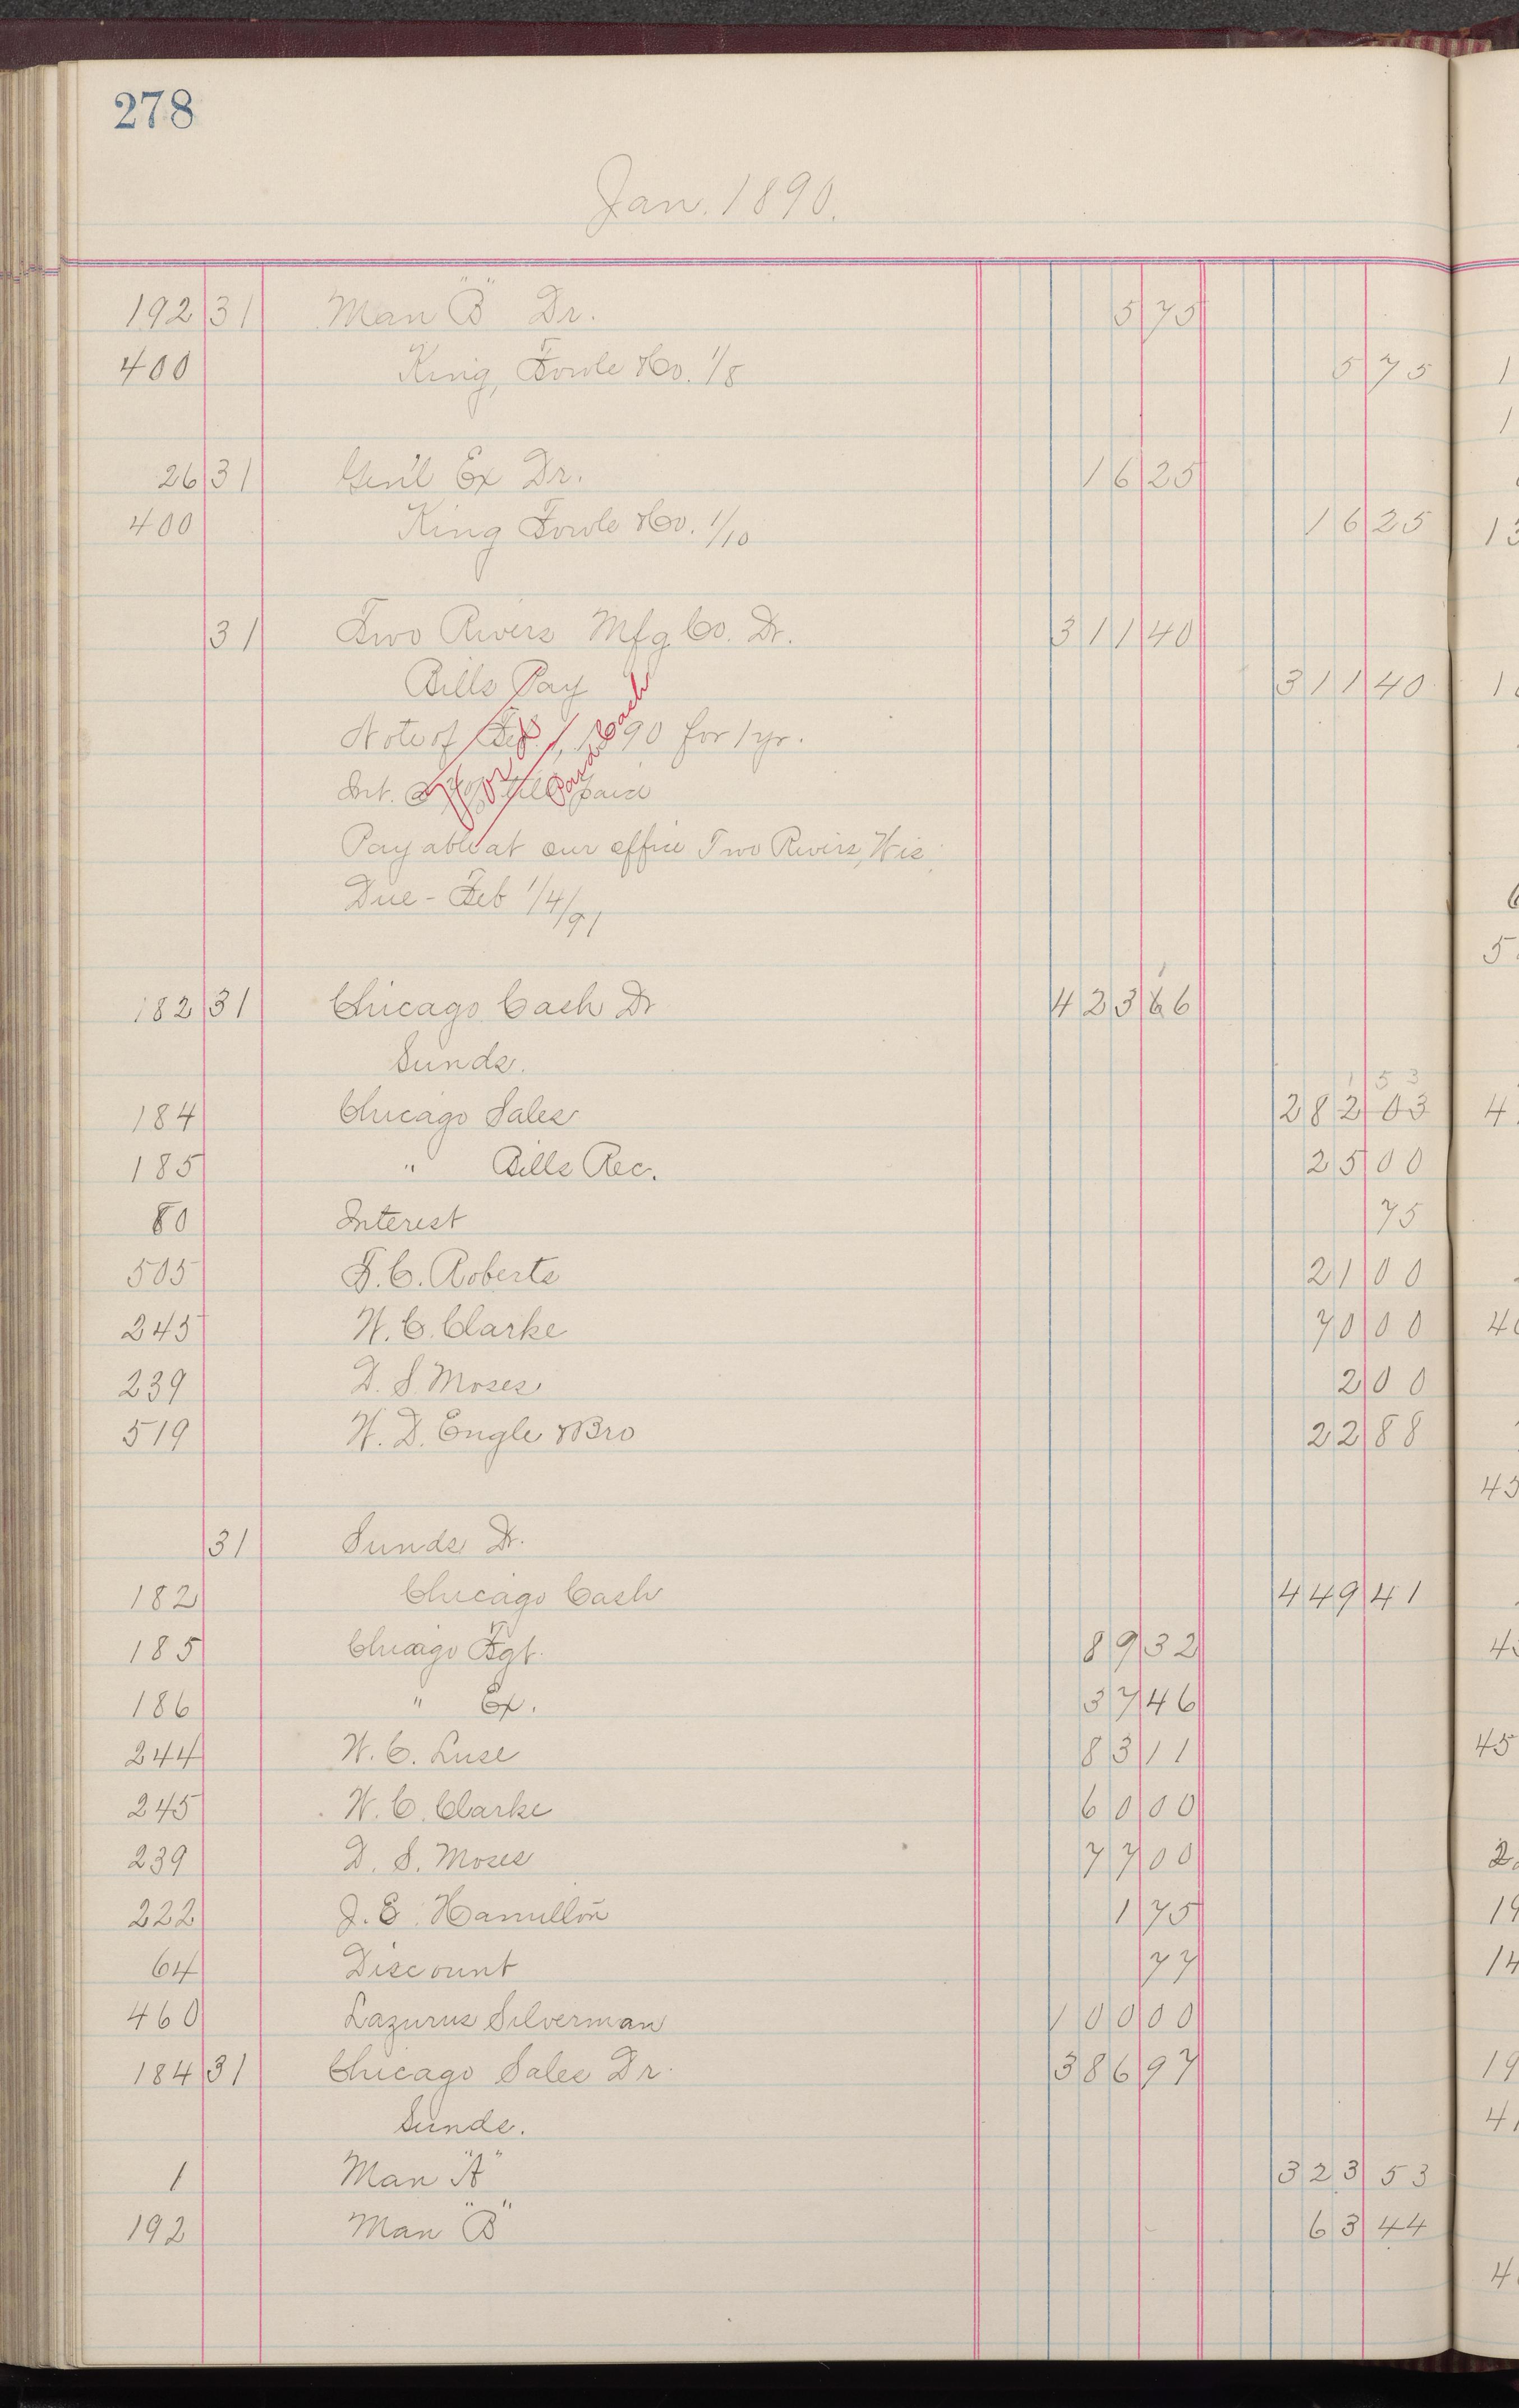 278
Jan. 1890.
192 31 Man "B" Dr. 5 75
400 King, Fowle & Co. 1/8 5 75
26 31 Gen'l Ex Dr. 16 25
400 King Fowle & Co. 1/10 16 25
31 Two Rivers Mfg Co. Dr. 311 40
Bills Pay 311 40
Note of Feb. 1, 1890 for 1 yr.
Int. @ till paid
Payable at our office Two Rivers, Wis.
Due - Feb 1/4/91
Paid Cash
182 31 Chicago Cash Dr 423 66
1
Sunds.
1 53
184 Chicago Sales 282 03
185 " Bills Rec. 25 00
80 Interest 75
505 F. C. Roberts 21 00
245 W. C. Clarke 70 00
239 D. S. Moses 2 00
519 W. D. Engle & Bro 22 88
31 Sunds Dr.
182 Chicago Cash 449 41
185 Chicago Fgt. 89 32
186 " Ex. 37 46
244 W. C. Luse 83 11
245 W. C. Clarke 60 00
239 D. S. Moses 77 00
222 J. E. Hamilton 1 75
64 Discount 77
460 Lazurus Silverman 100 00
184 31 Chicago Sales Dr. 386 97
Sunds.
1 Man "A" 323 53
192 Man "B" 63 44